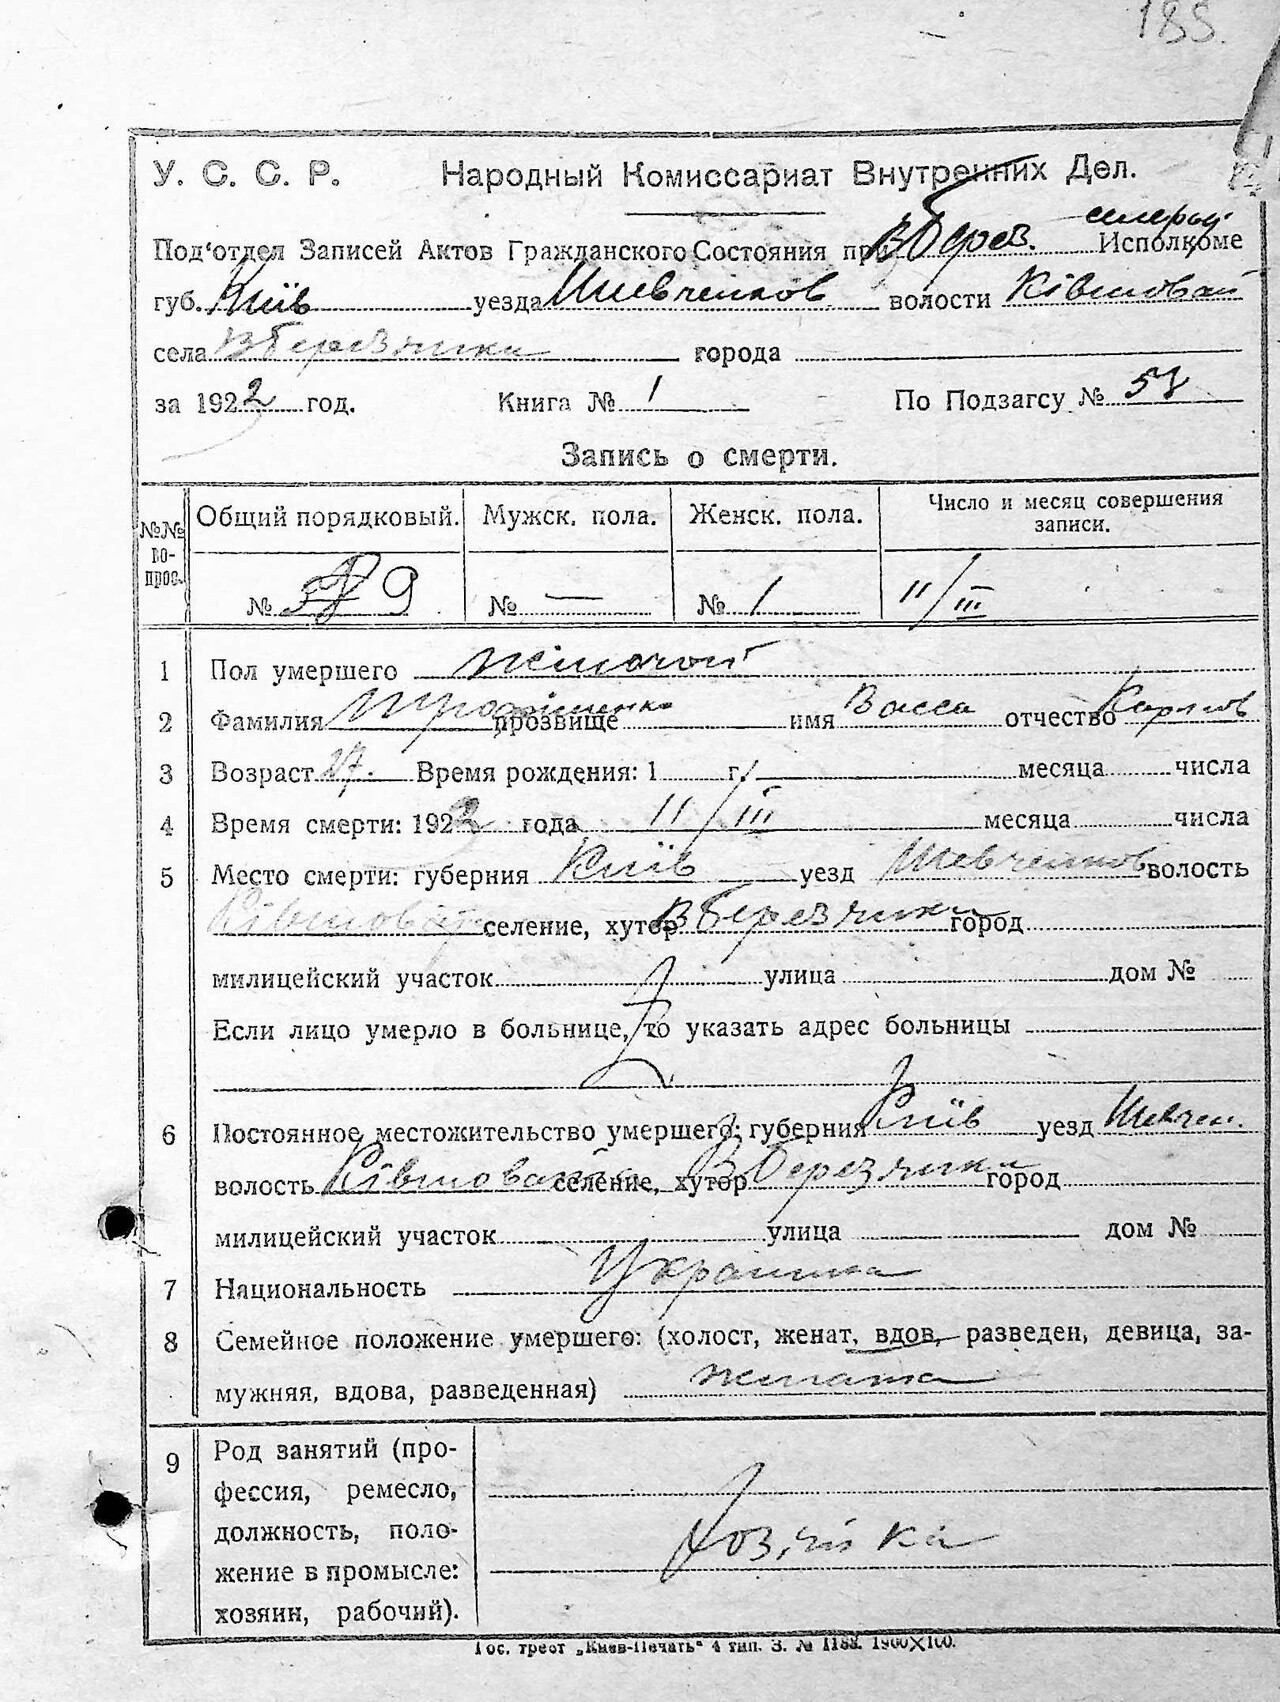 188.
У. С. С. Р. Народный Комиссариат Внутренних Дел.
Под'отдел Записей Актов Гражданского Состояния при В Берез. Исполкоме
губ. Київ уезда Шевченков волости Ківшоват
села В Березянки города
за 1922 год. Книга № 1 По Подзагсу №
Запись о смерти.
№№ во-прос. Общий порядковый. Мужск. пола. Женск. пола. Число и месяц совершения записи.
№ 9 № — № 1 11/III
1 Пол умершего жіночой
2 Фамилия прозвище имя Васса отчество Карпов
3 Возраст 27. Время рождения: 1 г. месяца числа
4 Время смерти: 1922 года 11/III месяца числа
5 Место смерти: губерния Київ уезд Шевченков волость
Ківшоват селение, хутор В Березянки город
милицейский участок улица дом №
Если лицо умерло в больнице, то указать адрес больницы
6 Постоянное местожительство умершего: губерния Київ уезд Шевчен.
волость селение, хутор В Березянки город
милицейский участок улица дом №
7 Национальность Украинка
8 Семейное положение умершего: (холост, женат, вдов, разведен, девица, за-
мужняя, вдова, разведенная) жената
9 Род занятий (про-
фессия, ремесло,
должность, поло-
жение в промысле: Хозяйка
хозяин, рабочий).
Гос. трест „Киев-Печать" 4 тип. З. № 1188. 1900×100.